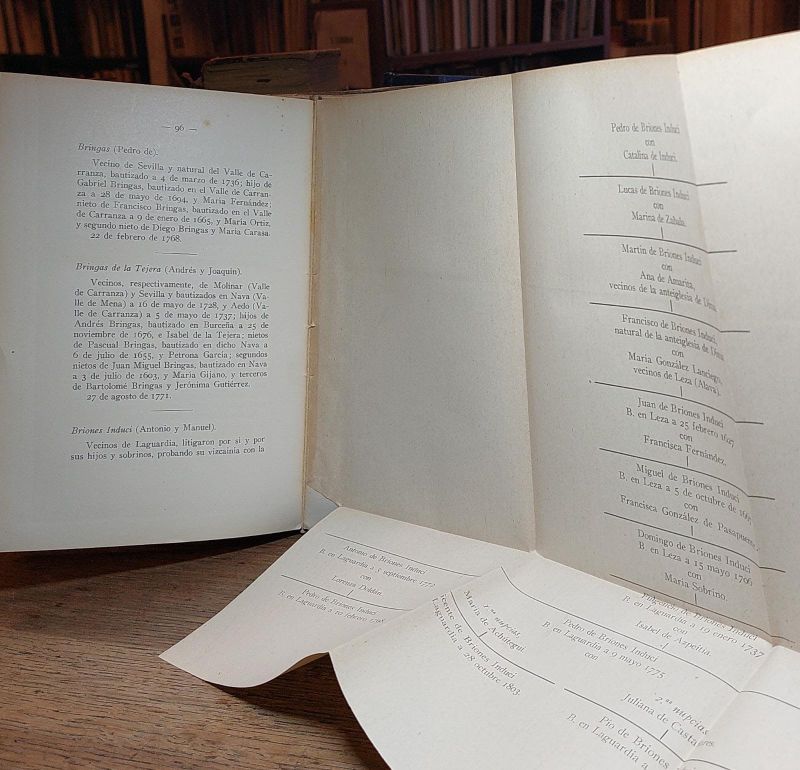 — 96 —
Bringas (Pedro de).
Vecino de Sevilla y natural del Valle de Ca-
rranza, bautizado a 4 de marzo de 1736; hijo de
Gabriel Bringas, bautizado en el Valle de Carran-
za a 28 de mayo de 1694, y María Fernández;
nieto de Francisco Bringas, bautizado en el Valle
de Carranza a 9 de enero de 1665, y María Ortiz,
y segundo nieto de Diego Bringas y María Carasa.
22 de febrero de 1768.
Bringas de la Tejera (Andrés y Joaquín).
Vecinos, respectivamente, de Molinar (Valle
de Carranza) y Sevilla y bautizados en Nava (Va-
lle de Mena) a 16 de mayo de 1728, y Aedo (Va-
lle de Carranza) a 5 de mayo de 1737; hijos de
Andrés Bringas, bautizado en Burceña a 25 de
noviembre de 1676, e Isabel de la Tejera; nietos
de Pascual Bringas, bautizado en dicho Nava a
6 de julio de 1655, y Petrona García; segundos
nietos de Juan Miguel Bringas, bautizado en Nava
a 3 de julio de 1603, y María Gijano, y terceros
de Bartolomé Bringas y Jerónima Gutiérrez.
27 de agosto de 1771.
Briones Induci (Antonio y Manuel).
Vecinos de Laguardia, litigaron por sí y por
sus hijos y sobrinos, probando su vizcainía con la
Pedro de Briones Induci
con
Catalina de Induci.
Lucas de Briones Induci
con
Marina de Zabala.
Martín de Briones Induci
con
Ana de Amarita,
vecinos de la anteiglesia de
Francisco de Briones Induci,
natural de la anteiglesia de
con
María González Lanciego,
vecinos de Leza (Álava).
Juan de Briones Induci
B. en Leza a 25 febrero 1627
con
Francisca Fernández.
Miguel de Briones Induci
B. en Leza a 5 de octubre de
con
Francisca González de Pasapuerta.
Domingo de Briones Induci
B. en Leza a 15 mayo 1706
con
María Sobrino.
de Briones Induci
B. en Laguardia a 19 enero 1737
con
Isabel de Azpeitia.
Antonio de Briones Induci
B. en Laguardia a 5 septiembre 1772
con
Lorenza
Pedro de Briones Induci
B. en Laguardia a 10 febrero
Pedro de Briones Induci
B. en Laguardia a 9 mayo 1775
con
1.as nupcias
María de Achitegui
de Briones Induci
Laguardia a 28 octubre 1803.
2.as nupcias
Juliana de
Pío de Briones
B. en Laguardia a